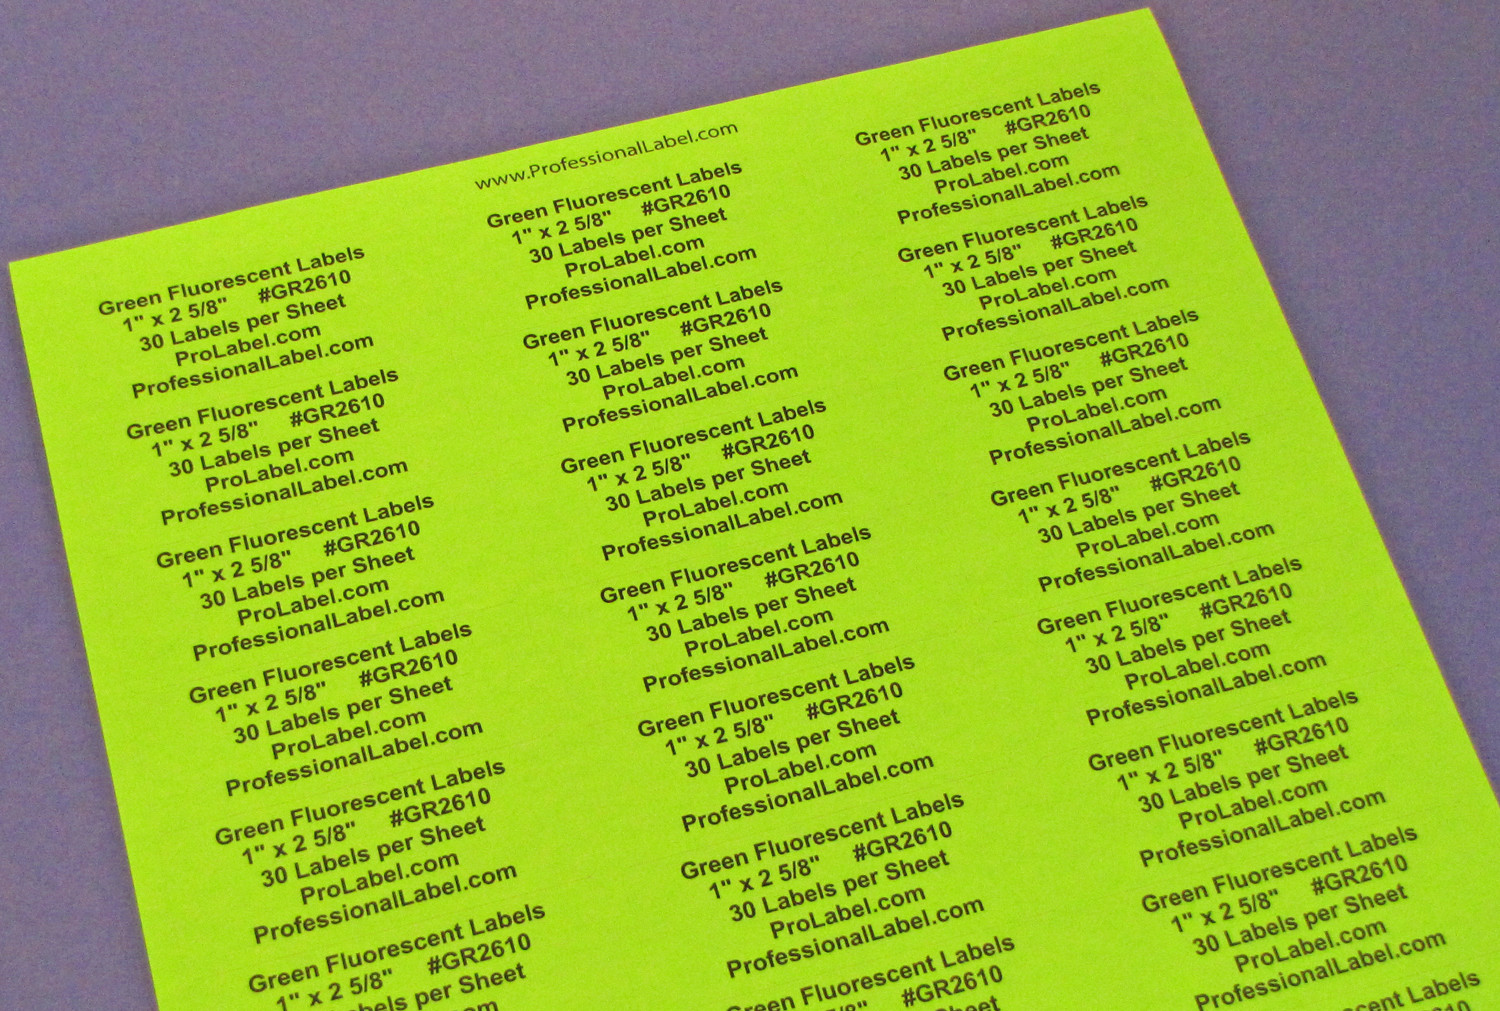 www.ProfessionalLabel.com
Green Fluorescent Labels
1" x 2 5/8" #GR2610
30 Labels per Sheet
ProLabel.com
ProfessionalLabel.com
Green Fluorescent Labels
1" x 2 5/8" #GR2610
30 Labels per Sheet
ProLabel.com
ProfessionalLabel.com
Green Fluorescent Labels
1" x 2 5/8" #GR2610
30 Labels per Sheet
ProLabel.com
ProfessionalLabel.com
Green Fluorescent Labels
1" x 2 5/8" #GR2610
30 Labels per Sheet
ProLabel.com
ProfessionalLabel.com
Green Fluorescent Labels
1" x 2 5/8" #GR2610
30 Labels per Sheet
ProLabel.com
ProfessionalLabel.com
Green Fluorescent Labels
1" x 2 5/8" #GR2610
per Sheet
Green Fluorescent Labels
1" x 2 5/8" #GR2610
30 Labels per Sheet
ProLabel.com
ProfessionalLabel.com
Green Fluorescent Labels
1" x 2 5/8" #GR2610
30 Labels per Sheet
ProLabel.com
ProfessionalLabel.com
Green Fluorescent Labels
1" x 2 5/8" #GR2610
30 Labels per Sheet
ProLabel.com
ProfessionalLabel.com
Green Fluorescent Labels
1" x 2 5/8" #GR2610
30 Labels per Sheet
ProLabel.com
ProfessionalLabel.com
Green Fluorescent Labels
1" x 2 5/8" #GR2610
30 Labels per Sheet
ProLabel.com
ProfessionalLabel.com
Green Fluorescent Labels
1" x 2 5/8" #GR2610
30 Labels per Sheet
ProLabel.com
ProfessionalLabel.com
Green Fluorescent Labels
5/8" #GR2610
Sheet
Green Fluorescent Labels
1" x 2 5/8" #GR2610
30 Labels per Sheet
ProLabel.com
ProfessionalLabel.com
Green Fluorescent Labels
1" x 2 5/8" #GR2610
30 Labels per Sheet
ProLabel.com
ProfessionalLabel.com
Green Fluorescent Labels
1" x 2 5/8" #GR2610
30 Labels per Sheet
ProLabel.com
ProfessionalLabel.com
Green Fluorescent Labels
1" x 2 5/8" #GR2610
30 Labels per Sheet
ProLabel.com
ProfessionalLabel.com
Green Fluorescent Labels
1" x 2 5/8" #GR2610
30 Labels per Sheet
ProLabel.com
ProfessionalLabel.com
Green Fluorescent Labels
1" x 2 5/8" #GR2610
30 Labels per Sheet
ProLabel.com
ProfessionalLabel.com
Green Fluorescent Labels
1" x 2 5/8" #GR2610
30 Labels per Sheet
ProLabel.com
ProfessionalLabel.com
Labels